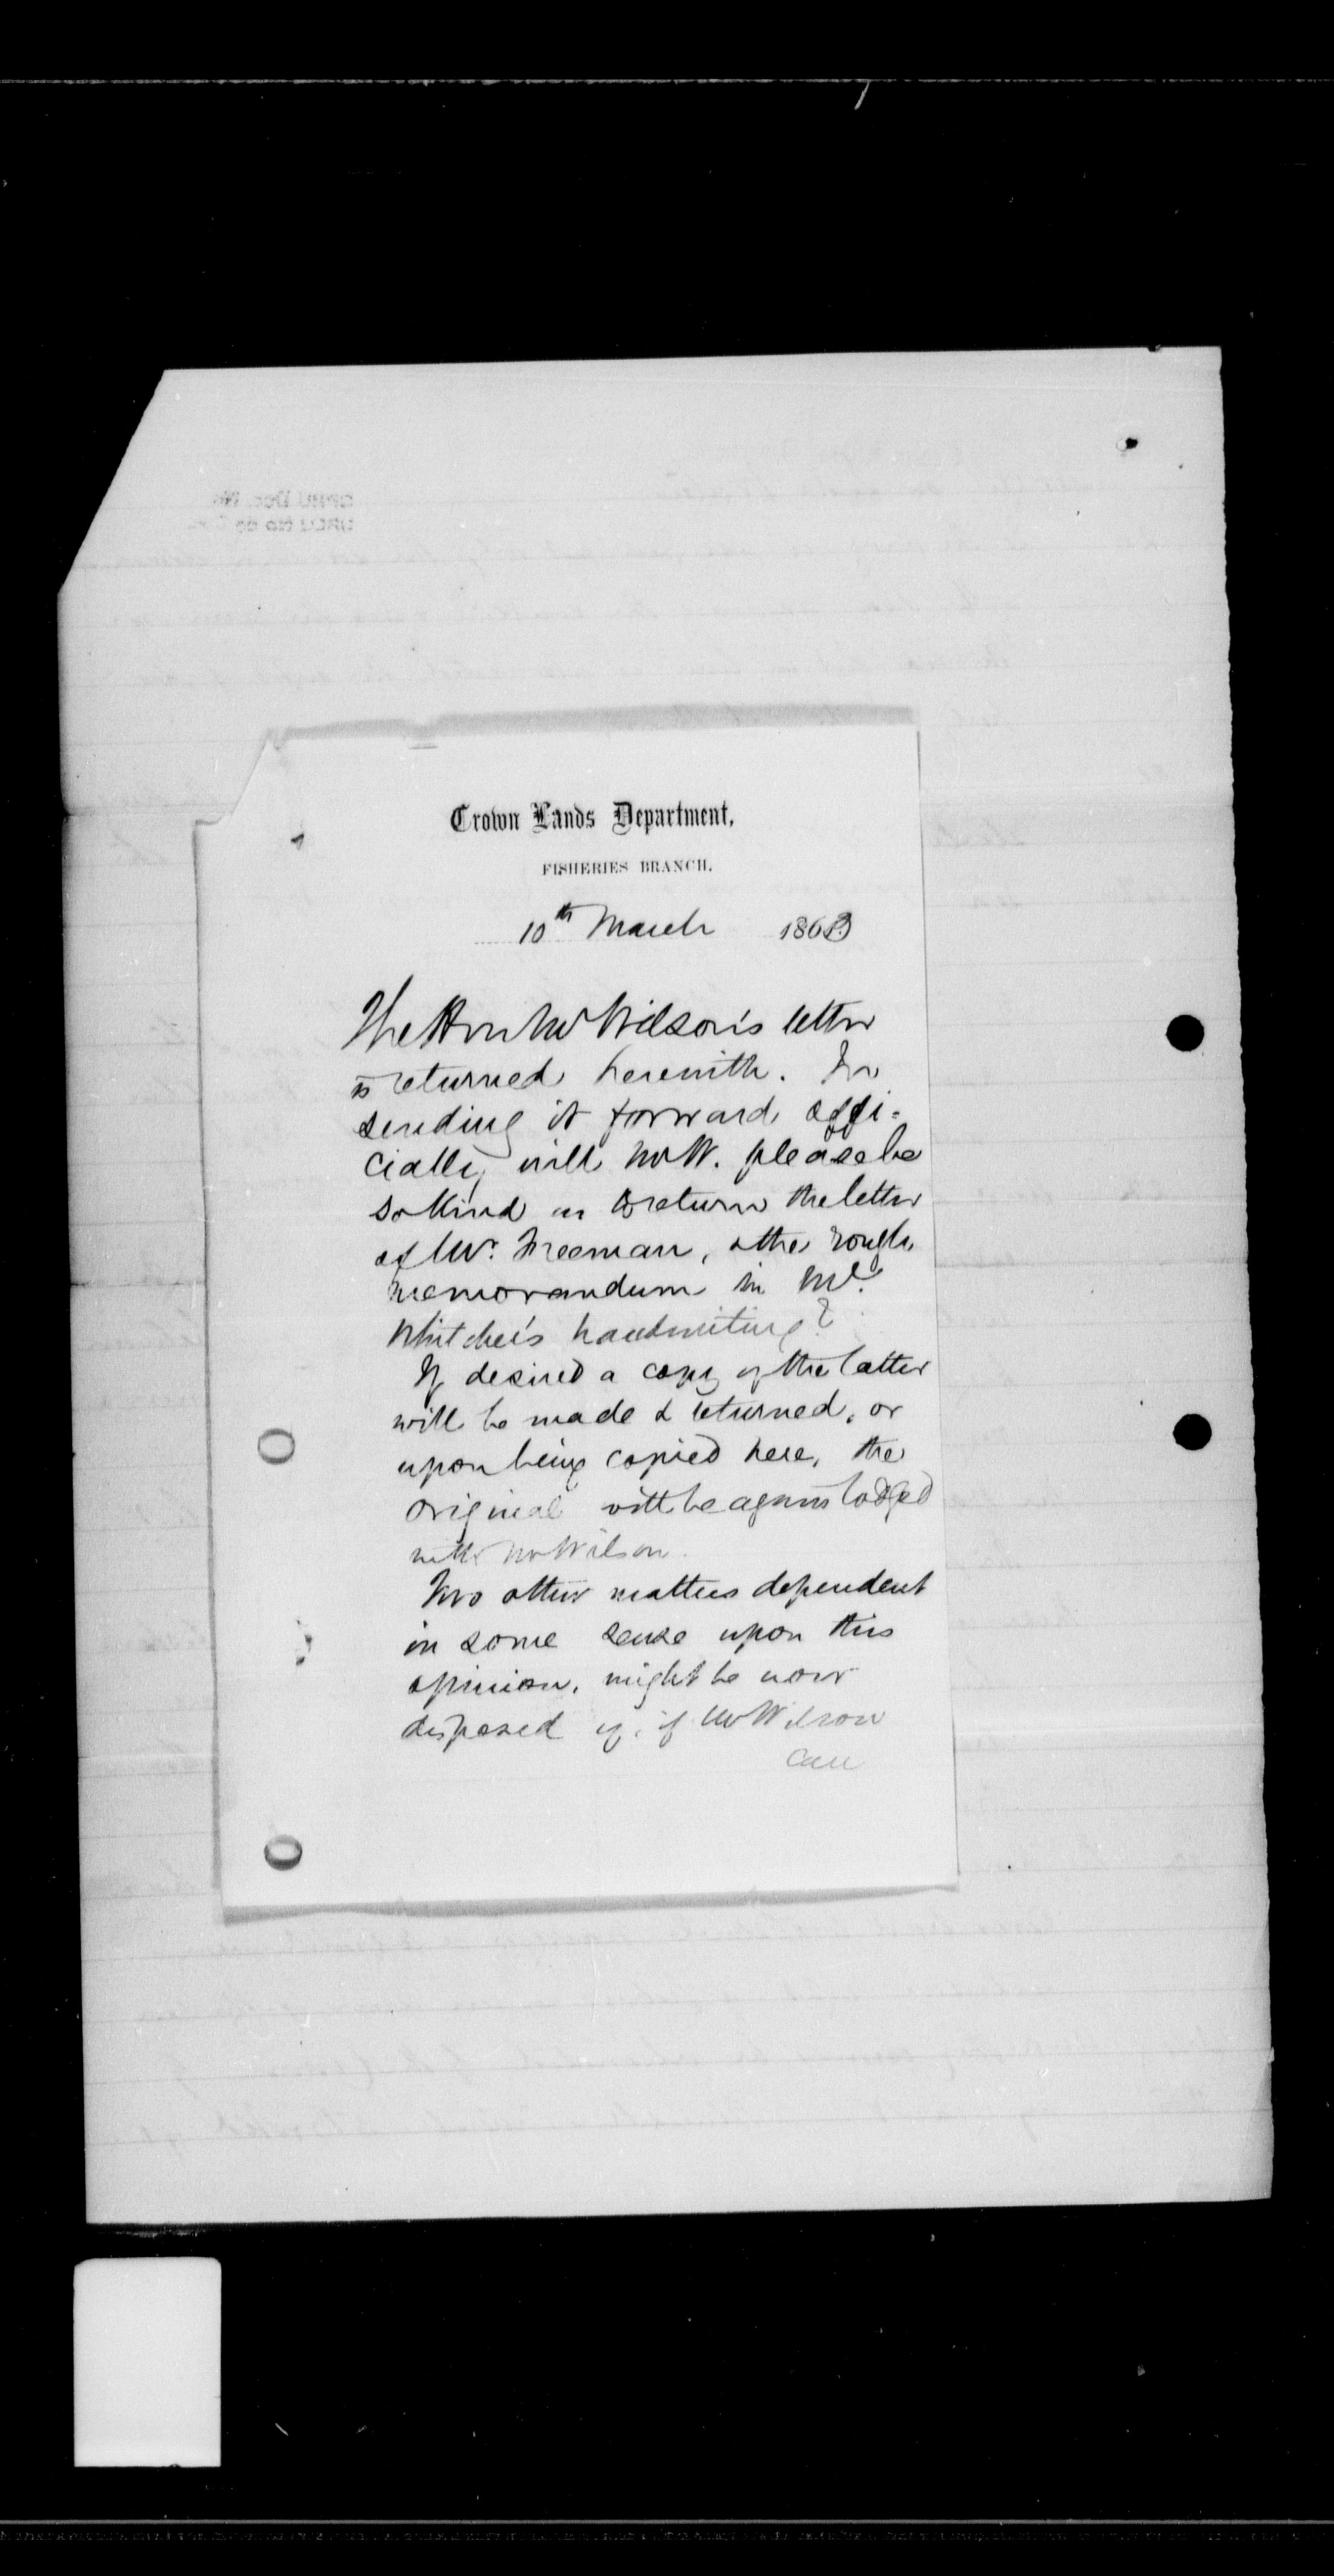 Crown Lands Department,
FISHERIES BRANCH.
10th March 1863
The Hon Mr Wilson's letter
is returned herewith. In
sending it forward offi-
cially will Mr W. please be
so kind as to return the letter
of Mr. Freeman, & the rough
memorandum in Mr.
Whitcher's handwriting?
If desired a copy of the latter
will be made & returned, or
upon being copied here, the
original will be again lodged
with Mr Wilson.
Two other matters dependent
in some sense upon this
opinion, might be now
disposed of, if Mr Wilson
can